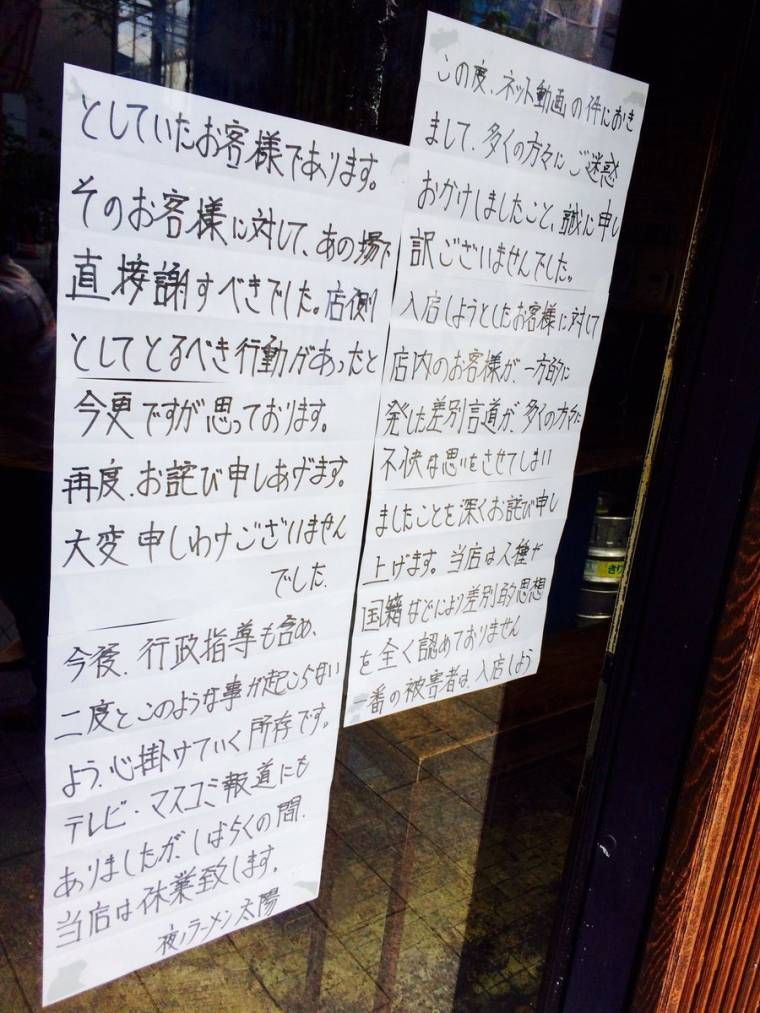 この度、ネット動画の件におき
まして、多くの方々にご迷惑
おかけしましたこと、誠に申し
訳ございませんでした。
入店しようとしたお客様に対して
店内のお客様が、一方的に
発した差別言道が、多くの方々に
不快な思いをさせてしまい
ましたことを深くお詫び申し
上げます。当店は人種が
国籍などにより差別的思想
を全く認めておりません
一番の被害者は、入店しよう
としていたお客様であります。
そのお客様に対して、あの場で
直接謝すべきでした。店側
としてとるべき行動があったと
今更ですが思っております。
再度、お詫び申しあげます。
大変申しわけございません
でした.
今後、行政指導も含め、
二度とこのような事が起こらない
よう、心掛けていく所存です。
テレビ・マスコミ報道にも
ありましたが、しばらくの間、
当店は休業致します。
夜ノラーメン太陽